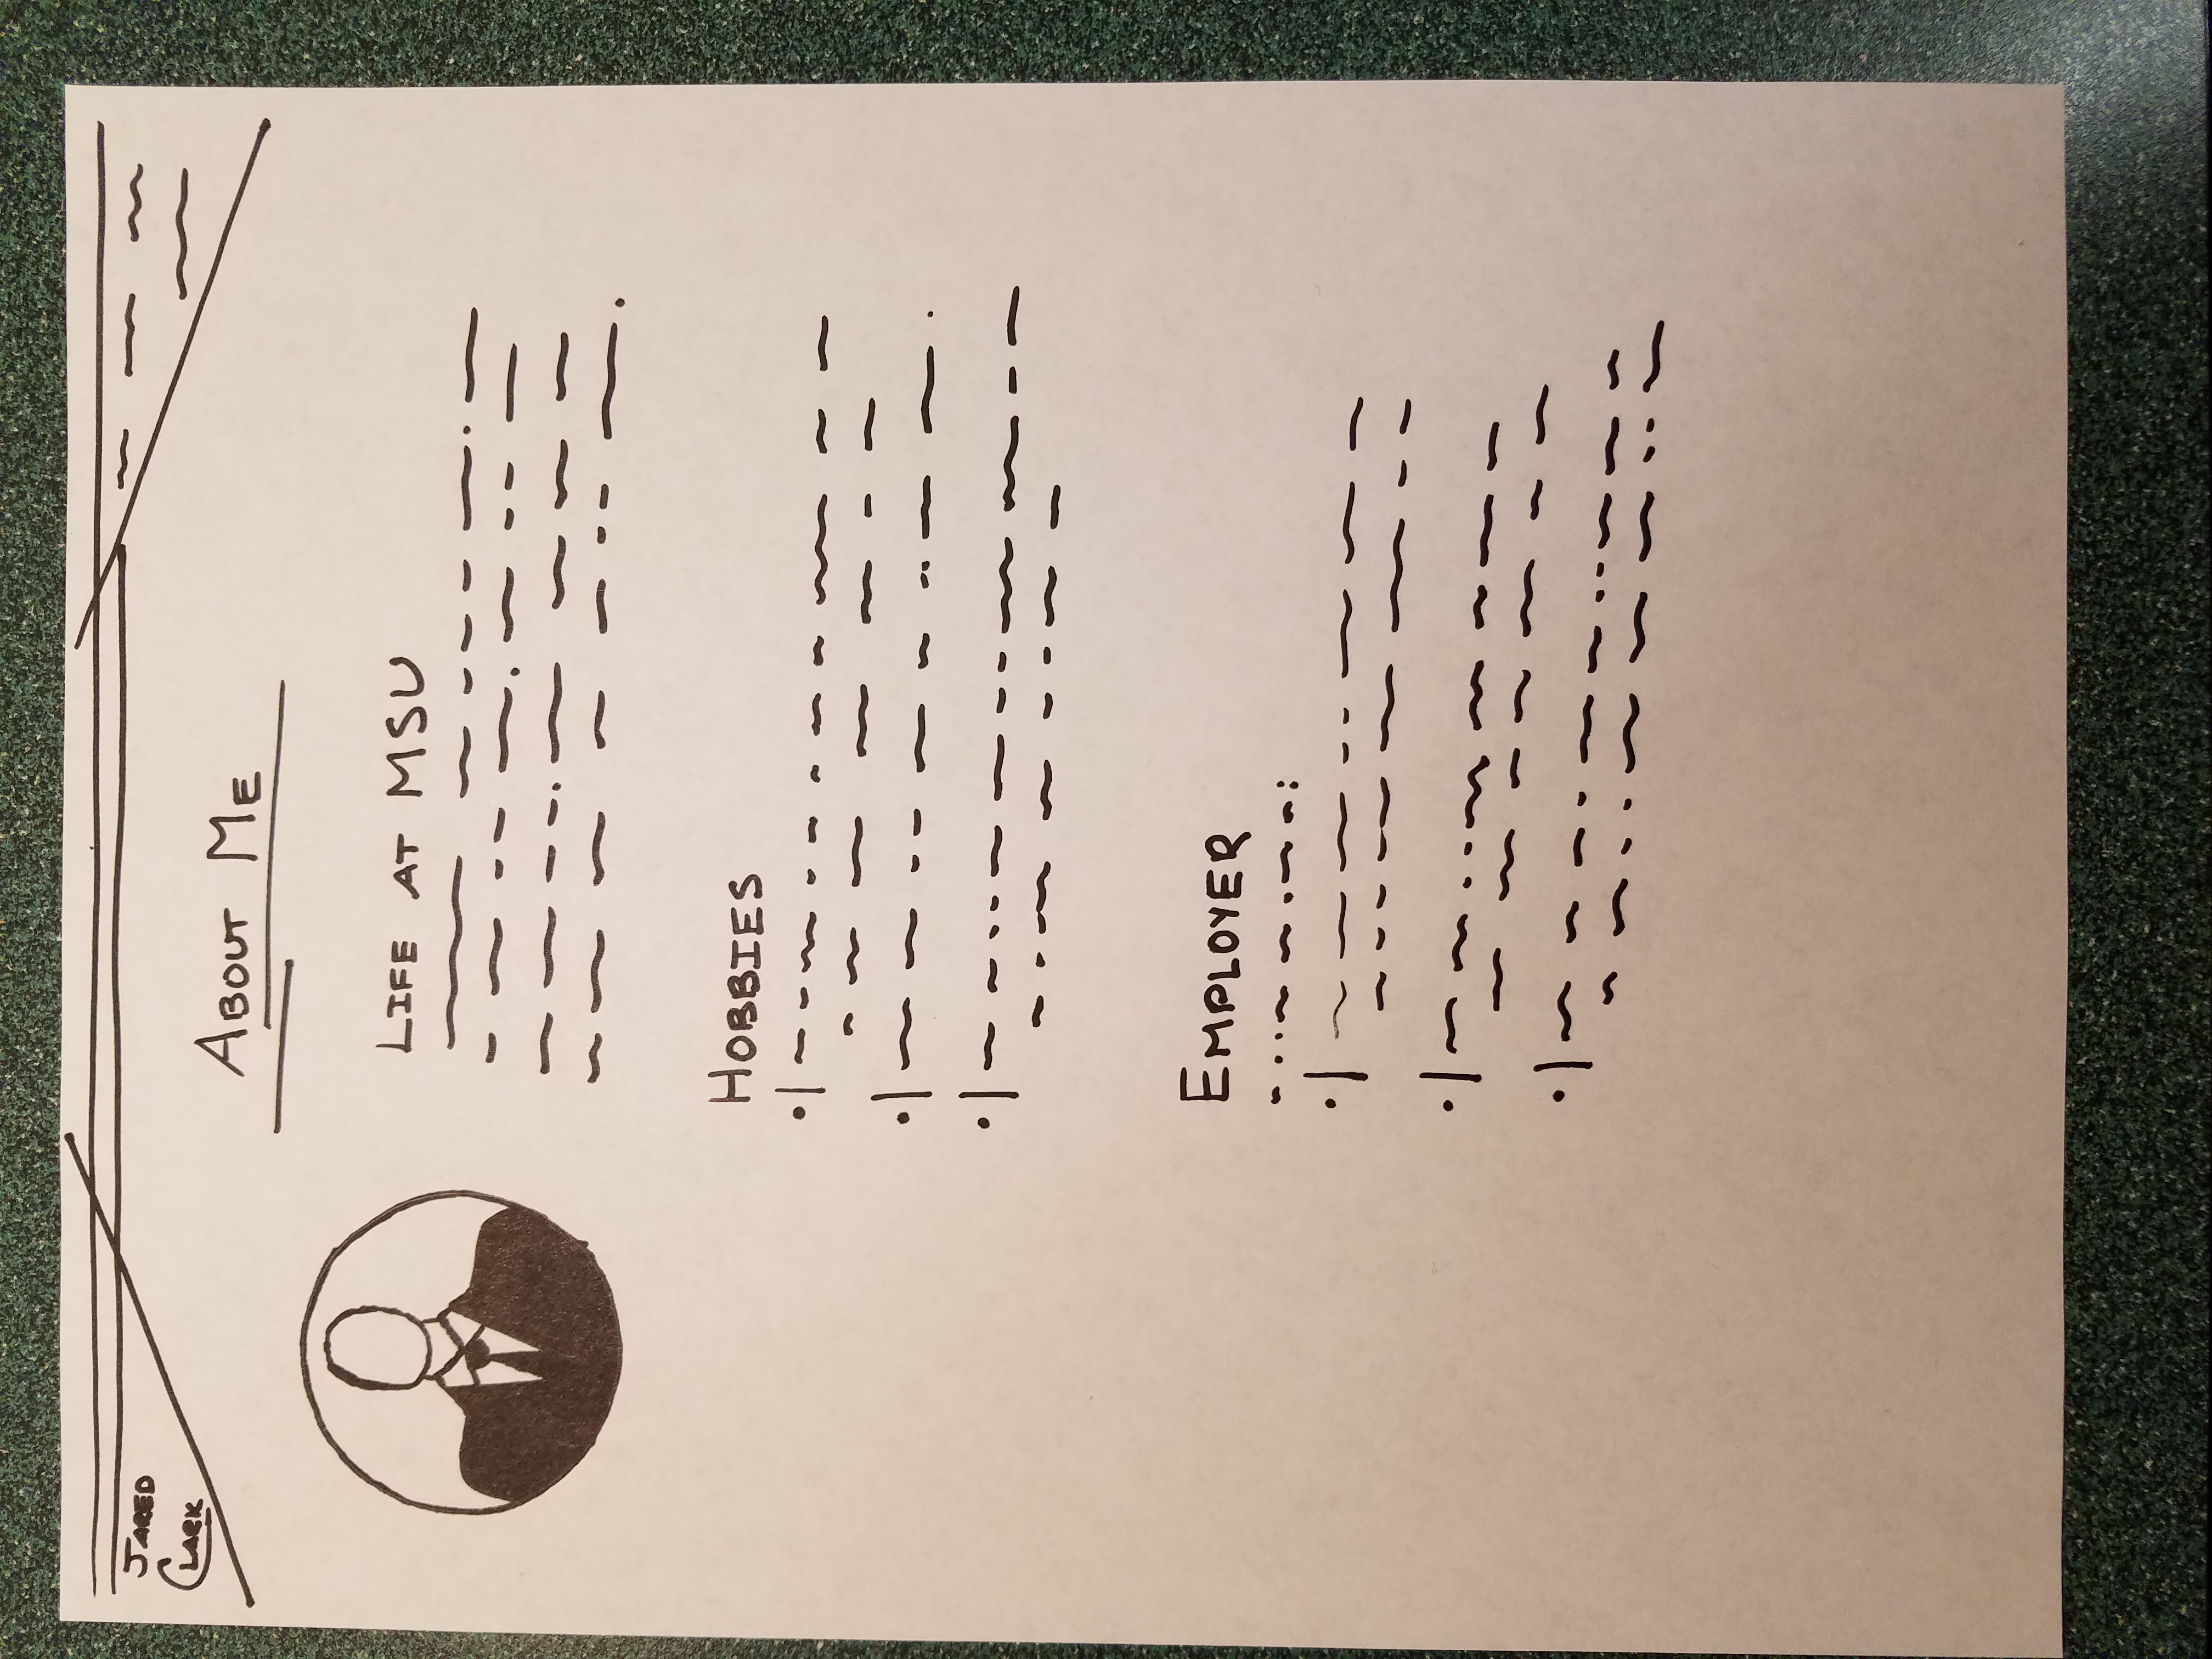 JARED
CLARK
ABOUT ME
LIFE AT MSU
HOBBIES
EMPLOYER